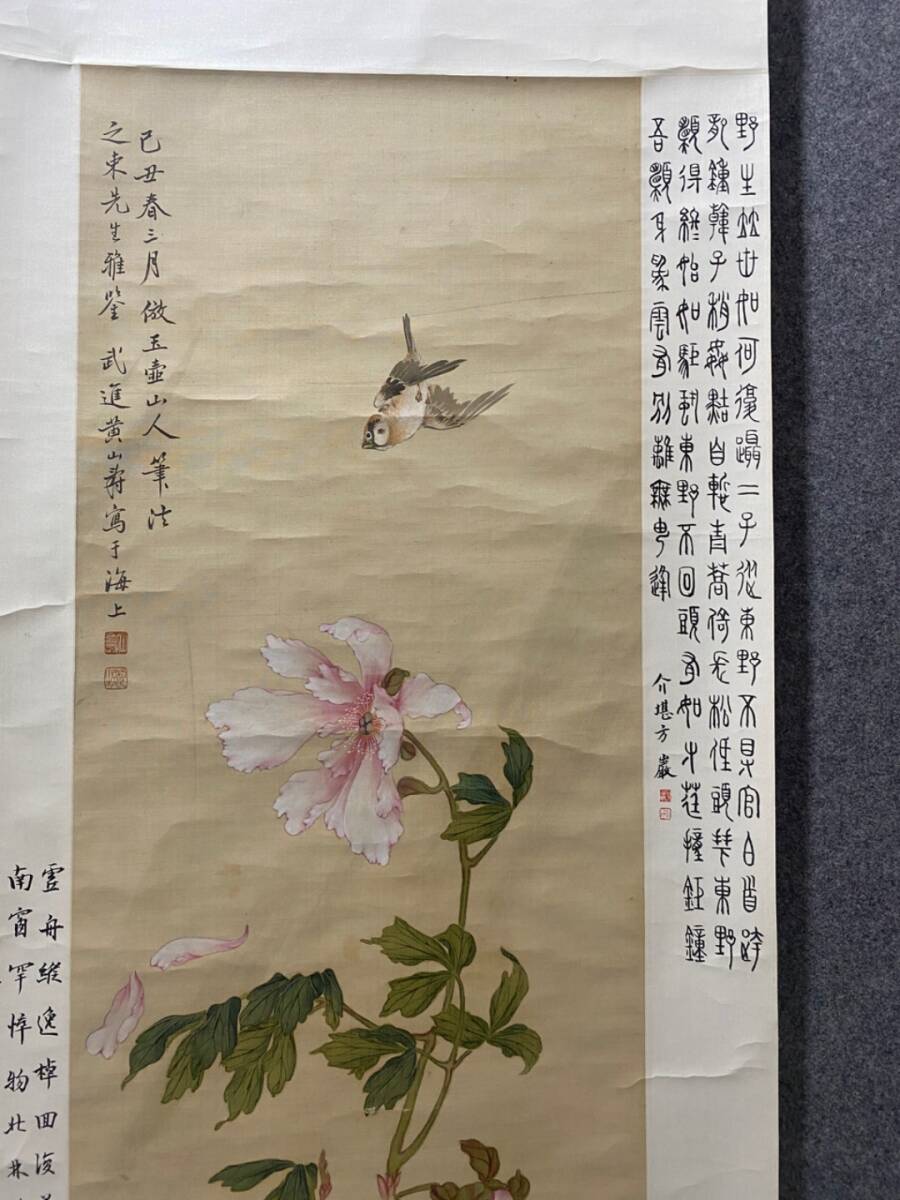 野生竝世如何復躡二子從東野不見官白首誇
龍鍾韓子稍姦黠自慙青蒿倚長松低頭拜東野
願得終始如駏蛩東野不回頭有如寸莛撞鉅鐘
吾願身爲雲有別離無由逢 介堪方巖
己丑春三月倣玉壺山人筆法
之東先生雅鑒 武進黃山壽寫于海上
虛舟縱逸棹回復
南窗罕悴物北林